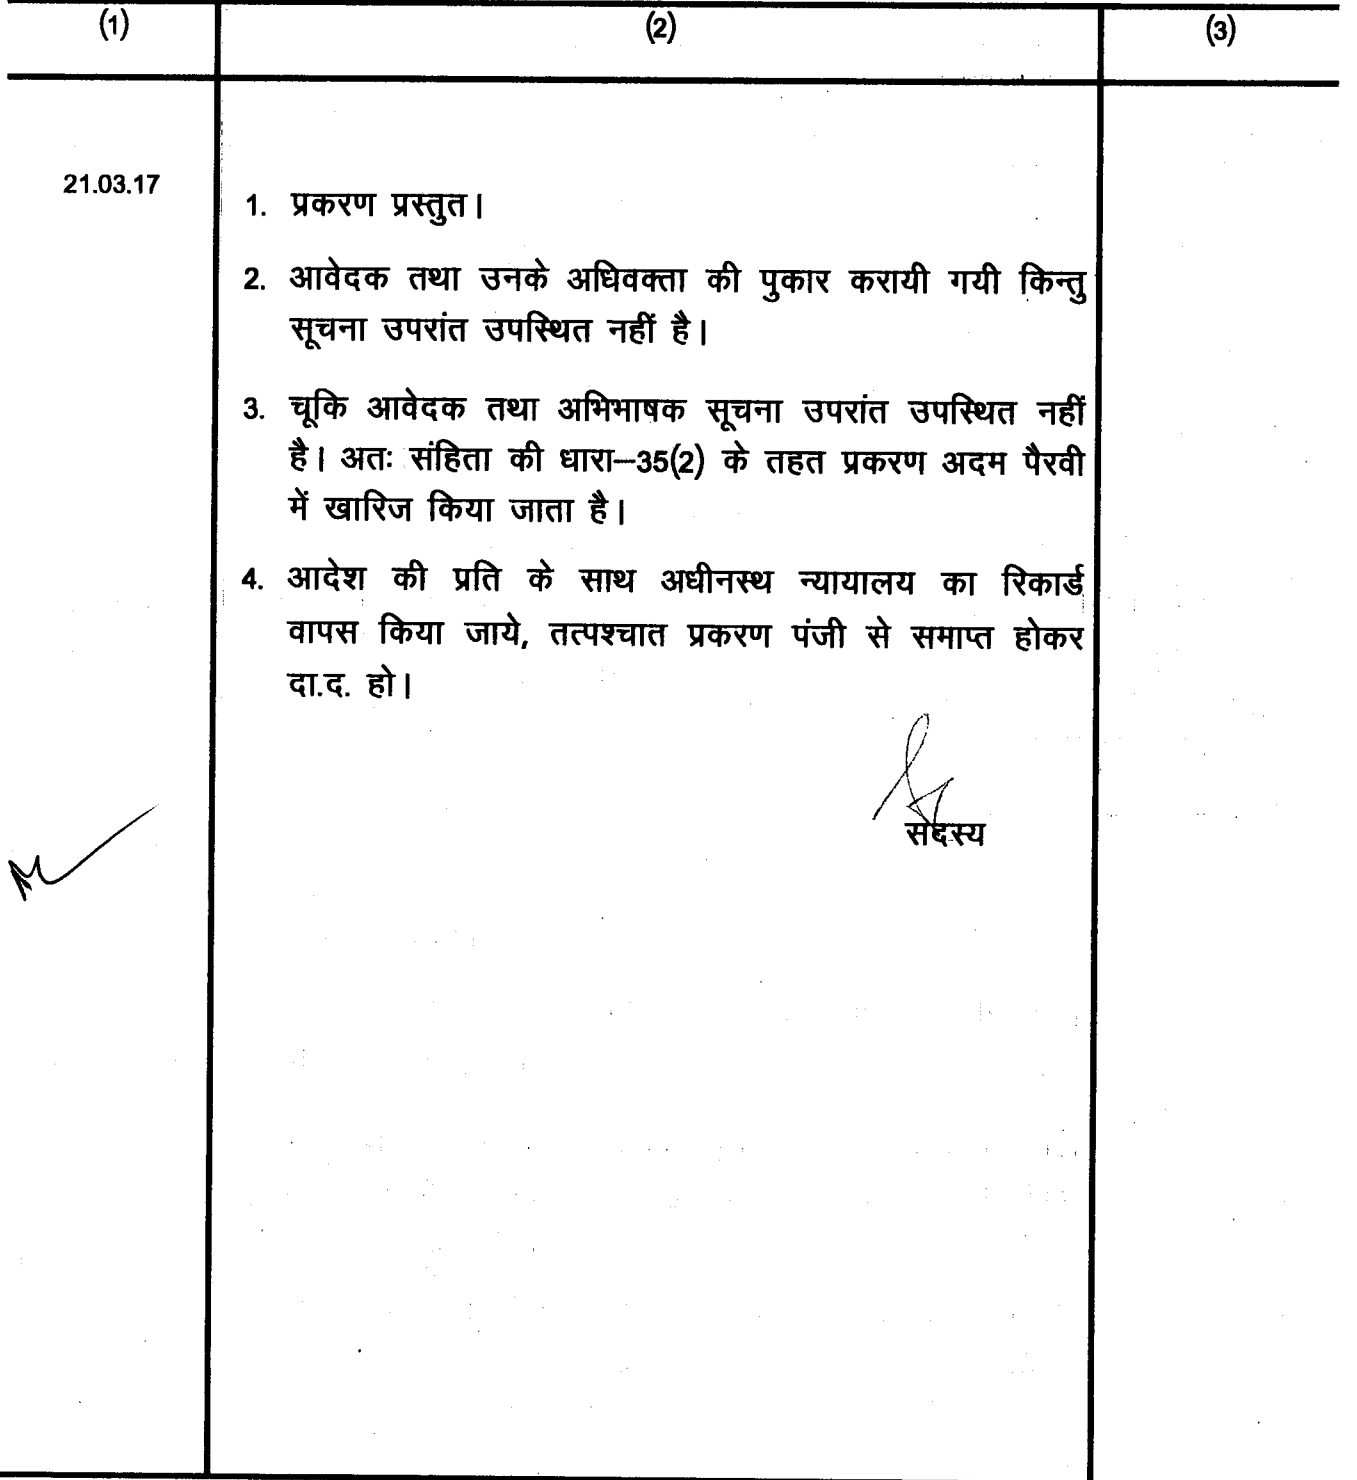 (1) (2) (3)
21.03.17
1. प्रकरण प्रस्तुत।
2. आवेदक तथा उनके अधिवक्ता की पुकार करायी गयी किन्तु
सूचना उपरांत उपस्थित नहीं है।
3. चूकि आवेदक तथा अभिभाषक सूचना उपरांत उपस्थित नहीं
है। अतः संहिता की धारा–35(2) के तहत प्रकरण अदम पैरवी
में खारिज किया जाता है।
4. आदेश की प्रति के साथ अधीनस्थ न्यायालय का रिकार्ड
वापस किया जाये, तत्पश्चात प्रकरण पंजी से समाप्त होकर
दा.द. हो।
सदस्य